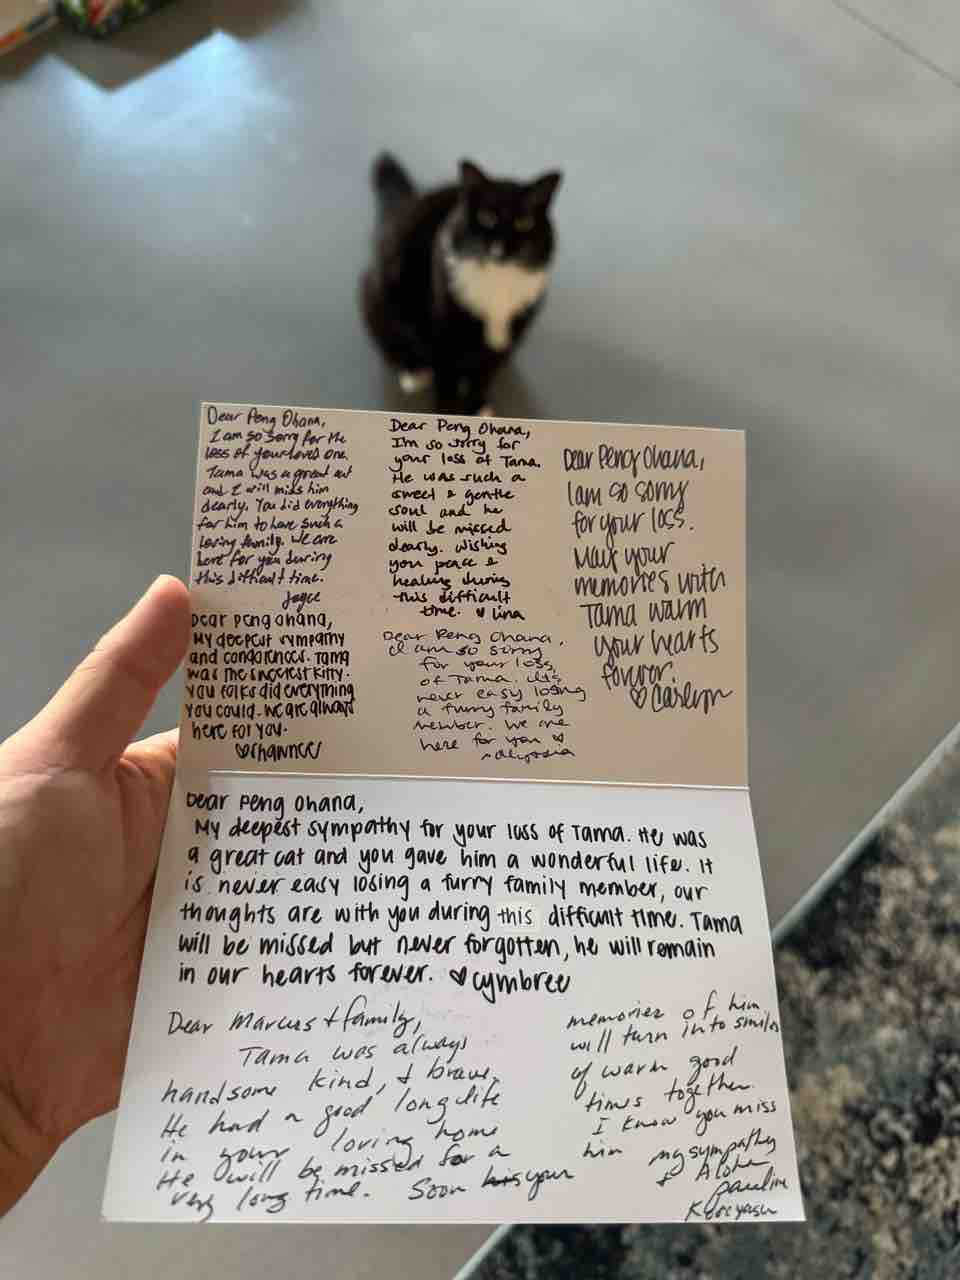 Dear Peng Ohana,
I am so sorry for the
loss of your loved one.
Tama was a great cat
and I will miss him
dearly. You did everything
for him to have such a
loving family. We are
here for you during
this difficult time.
Joyce
Dear Peng Ohana,
My deepest sympathy
and condolences. Tama
was the sweetest kitty.
You folks did everything
you could. We are always
here for you.
♡ Chauncei
Dear Peng Ohana,
I'm so sorry for
your loss of Tama.
He was such a
sweet & gentle
soul and he
will be missed
dearly. Wishing
you peace &
healing during
this difficult
time. ♥ Lina
Dear Peng Ohana,
I am so sorry
for your loss
of Tama. It's
never easy losing
a furry family
member. We are
here for you ♡
~Alyssia
Dear Peng Ohana,
I am so sorry
for your loss.
May your
memories with
Tama warm
your hearts
forever.
♡
Dear Peng Ohana,
My deepest sympathy for your loss of Tama. He was
a great cat and you gave him a wonderful life. It
is never easy losing a furry family member, our
thoughts are with you during this difficult time. Tama
will be missed but never forgotten, he will remain
in our hearts forever. ♡ Cymbree
Dear Marcus & family,
Tama was always
handsome kind, & brave.
He had a good long life
in your loving home
He will be missed for a
very long time. Soon your
memories of him
will turn into smiles
of warm good
times together.
I know you miss
him my sympathy
& Aloha
Pauline